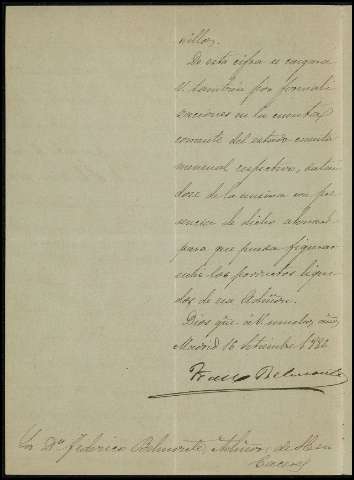 villas.
De esta cifra se cargará
V. tambien por formali
zaciones en la cuenta
corriente del estado cuenta
mensual respectivo, datan
dose de la misma en
de dicho
para que pueda figurar
entre los productos liqui
dos de esa Admon.
Dios gue. á V. muchos añs.
Madrid 16 Setiembre 1882
Franco Belmonte
Sor. Dn. Federico Belmonte, Admor. de